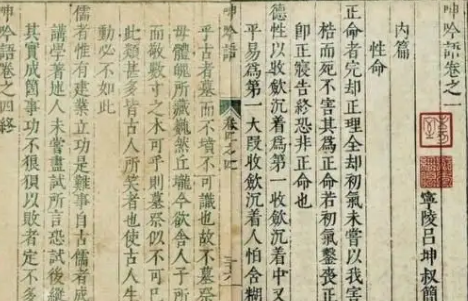 呻吟語卷之一
寧陵呂坤叔簡
內篇
性命
正命者完却正理全却初氣未嘗以我害
桎而死不害其爲正命若初氣鑿喪正
卽正寢告終恐非正命也
德性以收斂沉着爲第一收斂沉着中又
平易爲第一大段收斂沉着人怕含糊
呻吟語
卷之四
乎古者墓而不墳不可識也故不墓祭
母體魄所藏巍然丘壠今欲舍人子所
而敬數寸之木可乎則墓祭似不可
此類甚多皆古人所笑者也使古人生
動必不如此
儒者惟有建業立功是難事自古儒者成
講學著述人未嘗盡試所言恐試後縱
其實成箇事功不狼狽以敗者定不多
呻吟語卷之四終